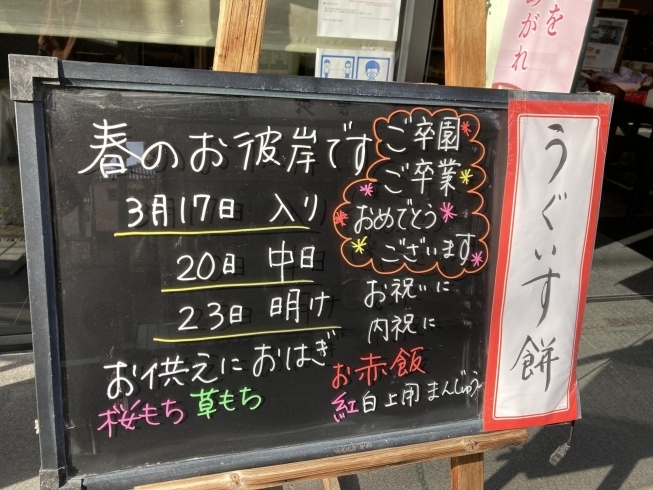 春のお彼岸です
3月17日 入り
20日 中日
23日 明け
お供えに おはぎ
桜もち 草もち
ご卒園
ご卒業
おめでとう
ございます
お祝いに
内祝に
お赤飯
紅白上用まんじゅう
うぐいす餅
を
あがれ